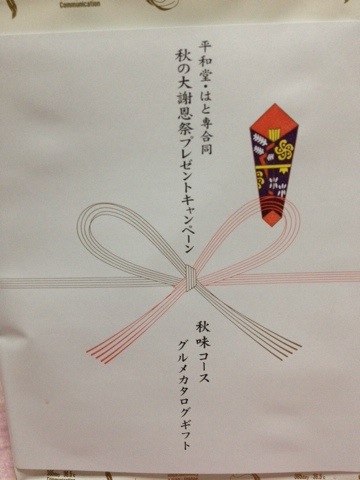 Communication
平和堂・はと専合同
秋の大謝恩祭プレゼントキャンペーン
秋味コース
グルメカタログギフト
Communication